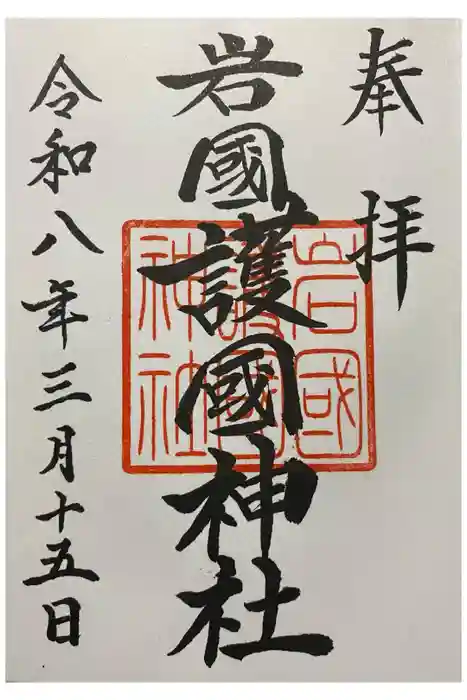 奉拝
岩國護國神社
岩國護國神社
令和八年三月十五日